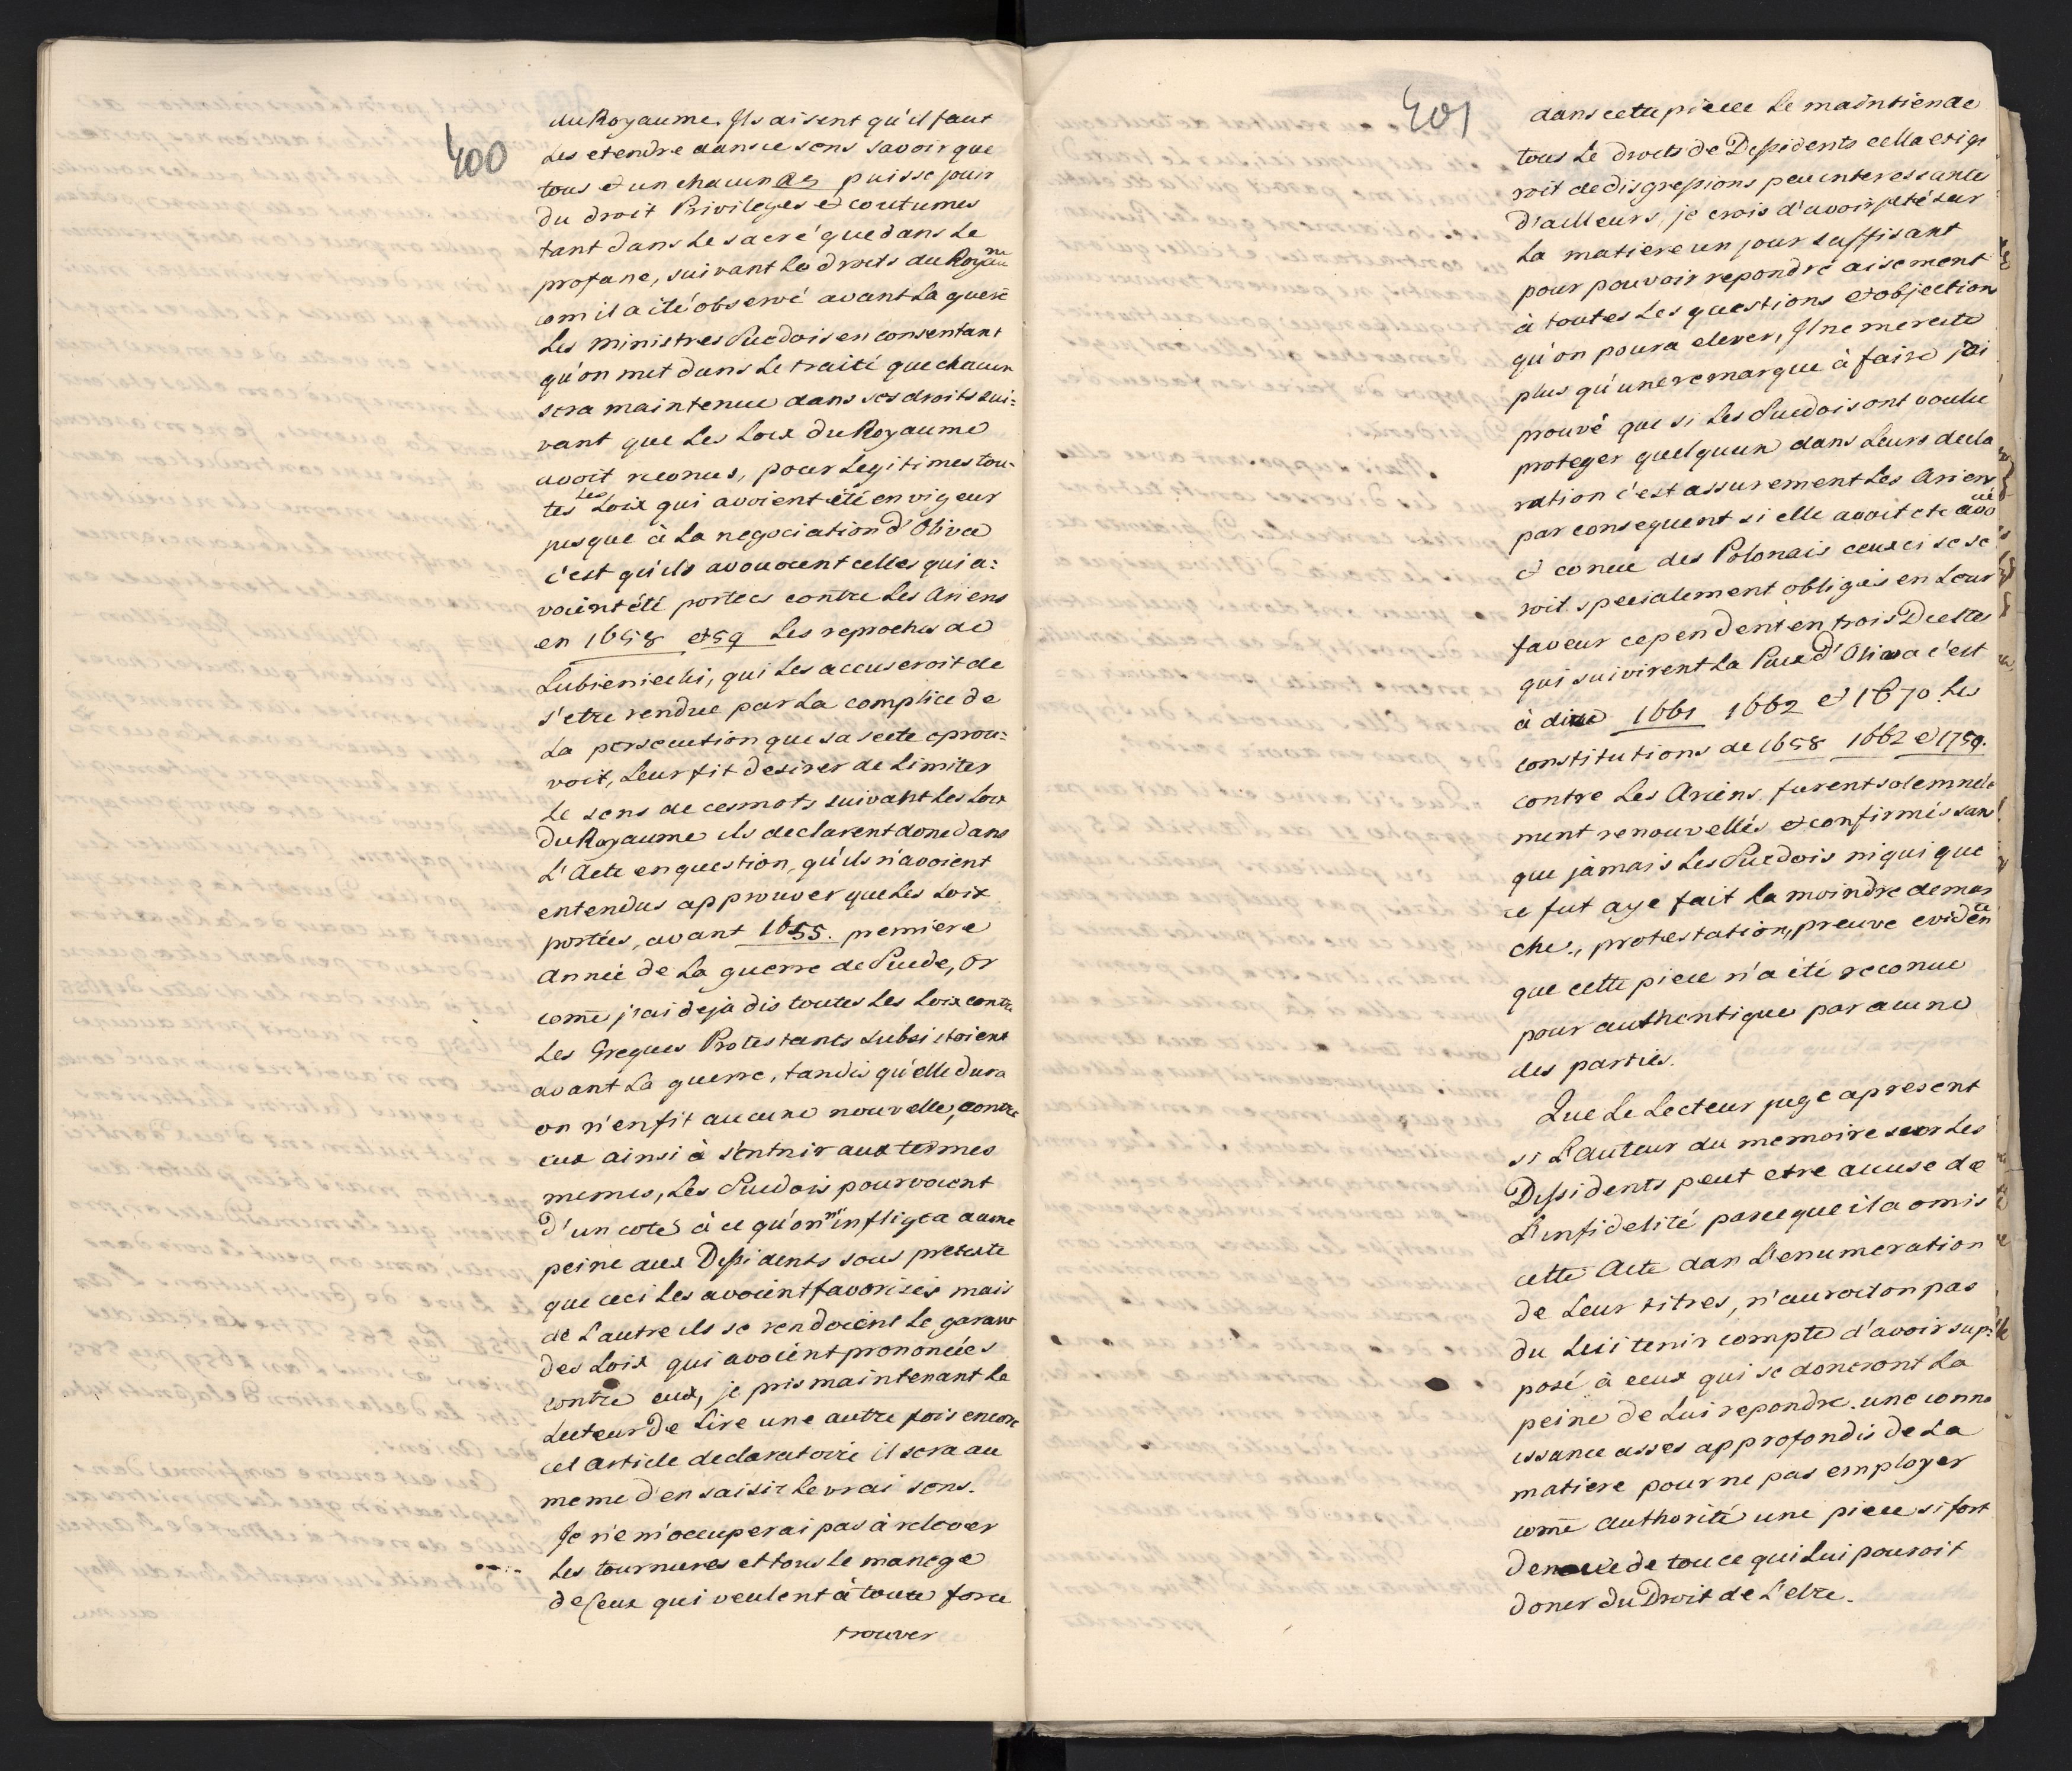 400
du Royaume. Ils disent qu'il faut
les etendre dans ce sens savoir que
tous et un chacun des puisse jouir
du droit Privileges et coutumes
tant dans le sacré que dans le
profane, suivant les droits du Royaume
com il a été observé avant la guerē
Les ministres Suedois en consentant
qu'on met dans le traité que chacun
sera maintenue dans ses droits sui=
vant que les Loix du Royaume
avoit reconus, pour legitimes tou-
tes les Loix qui avoient été en vigeur
jusque à la negociation d'Oliva
c'est qu'ils avouoient celles qui a=
voient été portées contre les Ariens
en 1658 et 59 les reproches de
Lubieniecki, qui les accuseroit de
s'etre rendue par la complice de
la persecution que sa secte eprou=
voit, leur fit desirer de limiter
le sens de ces mots suivant les Loix
du Royaume ils declarent donc dans
l'Acte en question, qu'ils n'avoient
entendus approuver que les Loix
portées, avant 1655. premiere
année de la guerre de Suede, or
comē j'ai deja dis toutes les Loix contre
les Greques Protestants subsistoient
avant la guerre, tandis qu'elle dura
on n'en fit aucune nouvelle, contre
eux ainsi à s'entnir aux termes
memes, les Suedois pourvoient
d'un coté à ce qu'on n'infligea aucune
peine aux Dissidents sous pretexte
que ceci les avoient favorisés mais
de l'autre ils se rendoient le garant
des Loix qui avoient prononcées
contre eux, je pris maintenant le
Lecteur de Lire une autre fois encore
cet Article declaratoire il sera au
meme d'en saisir le vrai sens.
Je ne m'occuperai pas à relever
les tournures et tous le manege
de Ceux qui veulent à toute force
trouver
401
dans cette piece le maintien de
tous le droits de Dissidents cella exige
roit de disgressions peu interessantes
d'ailleurs, je crois d'avoir jeté sur
la matiere un jour suffisant
pour pouvoir repondre aisement
à toutes les questions et objections
qu'on poura elever, Il ne me reste
plus qu'une remarque à faire j'ai
prouvé que si les Suedois ont voulu
proteger quelquun dans leurs decla
ration c'est assurement les Ariens
par consequent si elle avoit été avoué
et conue des Polonais ceux ci se se
roit specialement obligés en leur
faveur cependent en trois Diettes
qui suivirent la Paix d'Oliva c'est
à dire 1661 1662 et 1670. les
constitutions de 1658 1662 et 1759.
contre les Ariens. furent solemnele
ment renouvellés et confirmés sans
que jamais les Suedois ni qui que
ce fut aye fait la moindre demar
che., protestation, preuve evidente
que cette piece n'a été reconue
pour authentique par aucune
des parties.
Que le Lecteur juge apresent
si l'auteur du memoire sur les
Dissidents peut etre accuse de
l'infidelité parceque il a omis
cette Acte dan l'enumeration
de leur titres, n'auroit on pas
du lui tenir compte d'avoir sup=
posé à ceux qui se doneront la
peine de lui repondre. une conna
issance asses approfondis de la
matiere pour ne pas employer
comē authorité une piece si fort
denuée de tou ce qui lui pouroit
doner du Droit de l'etre.